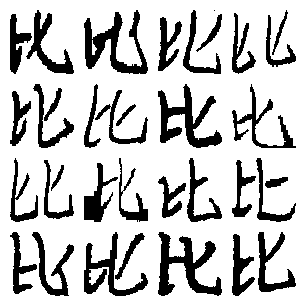 比比比比
比比比比
比比比比
比比比比